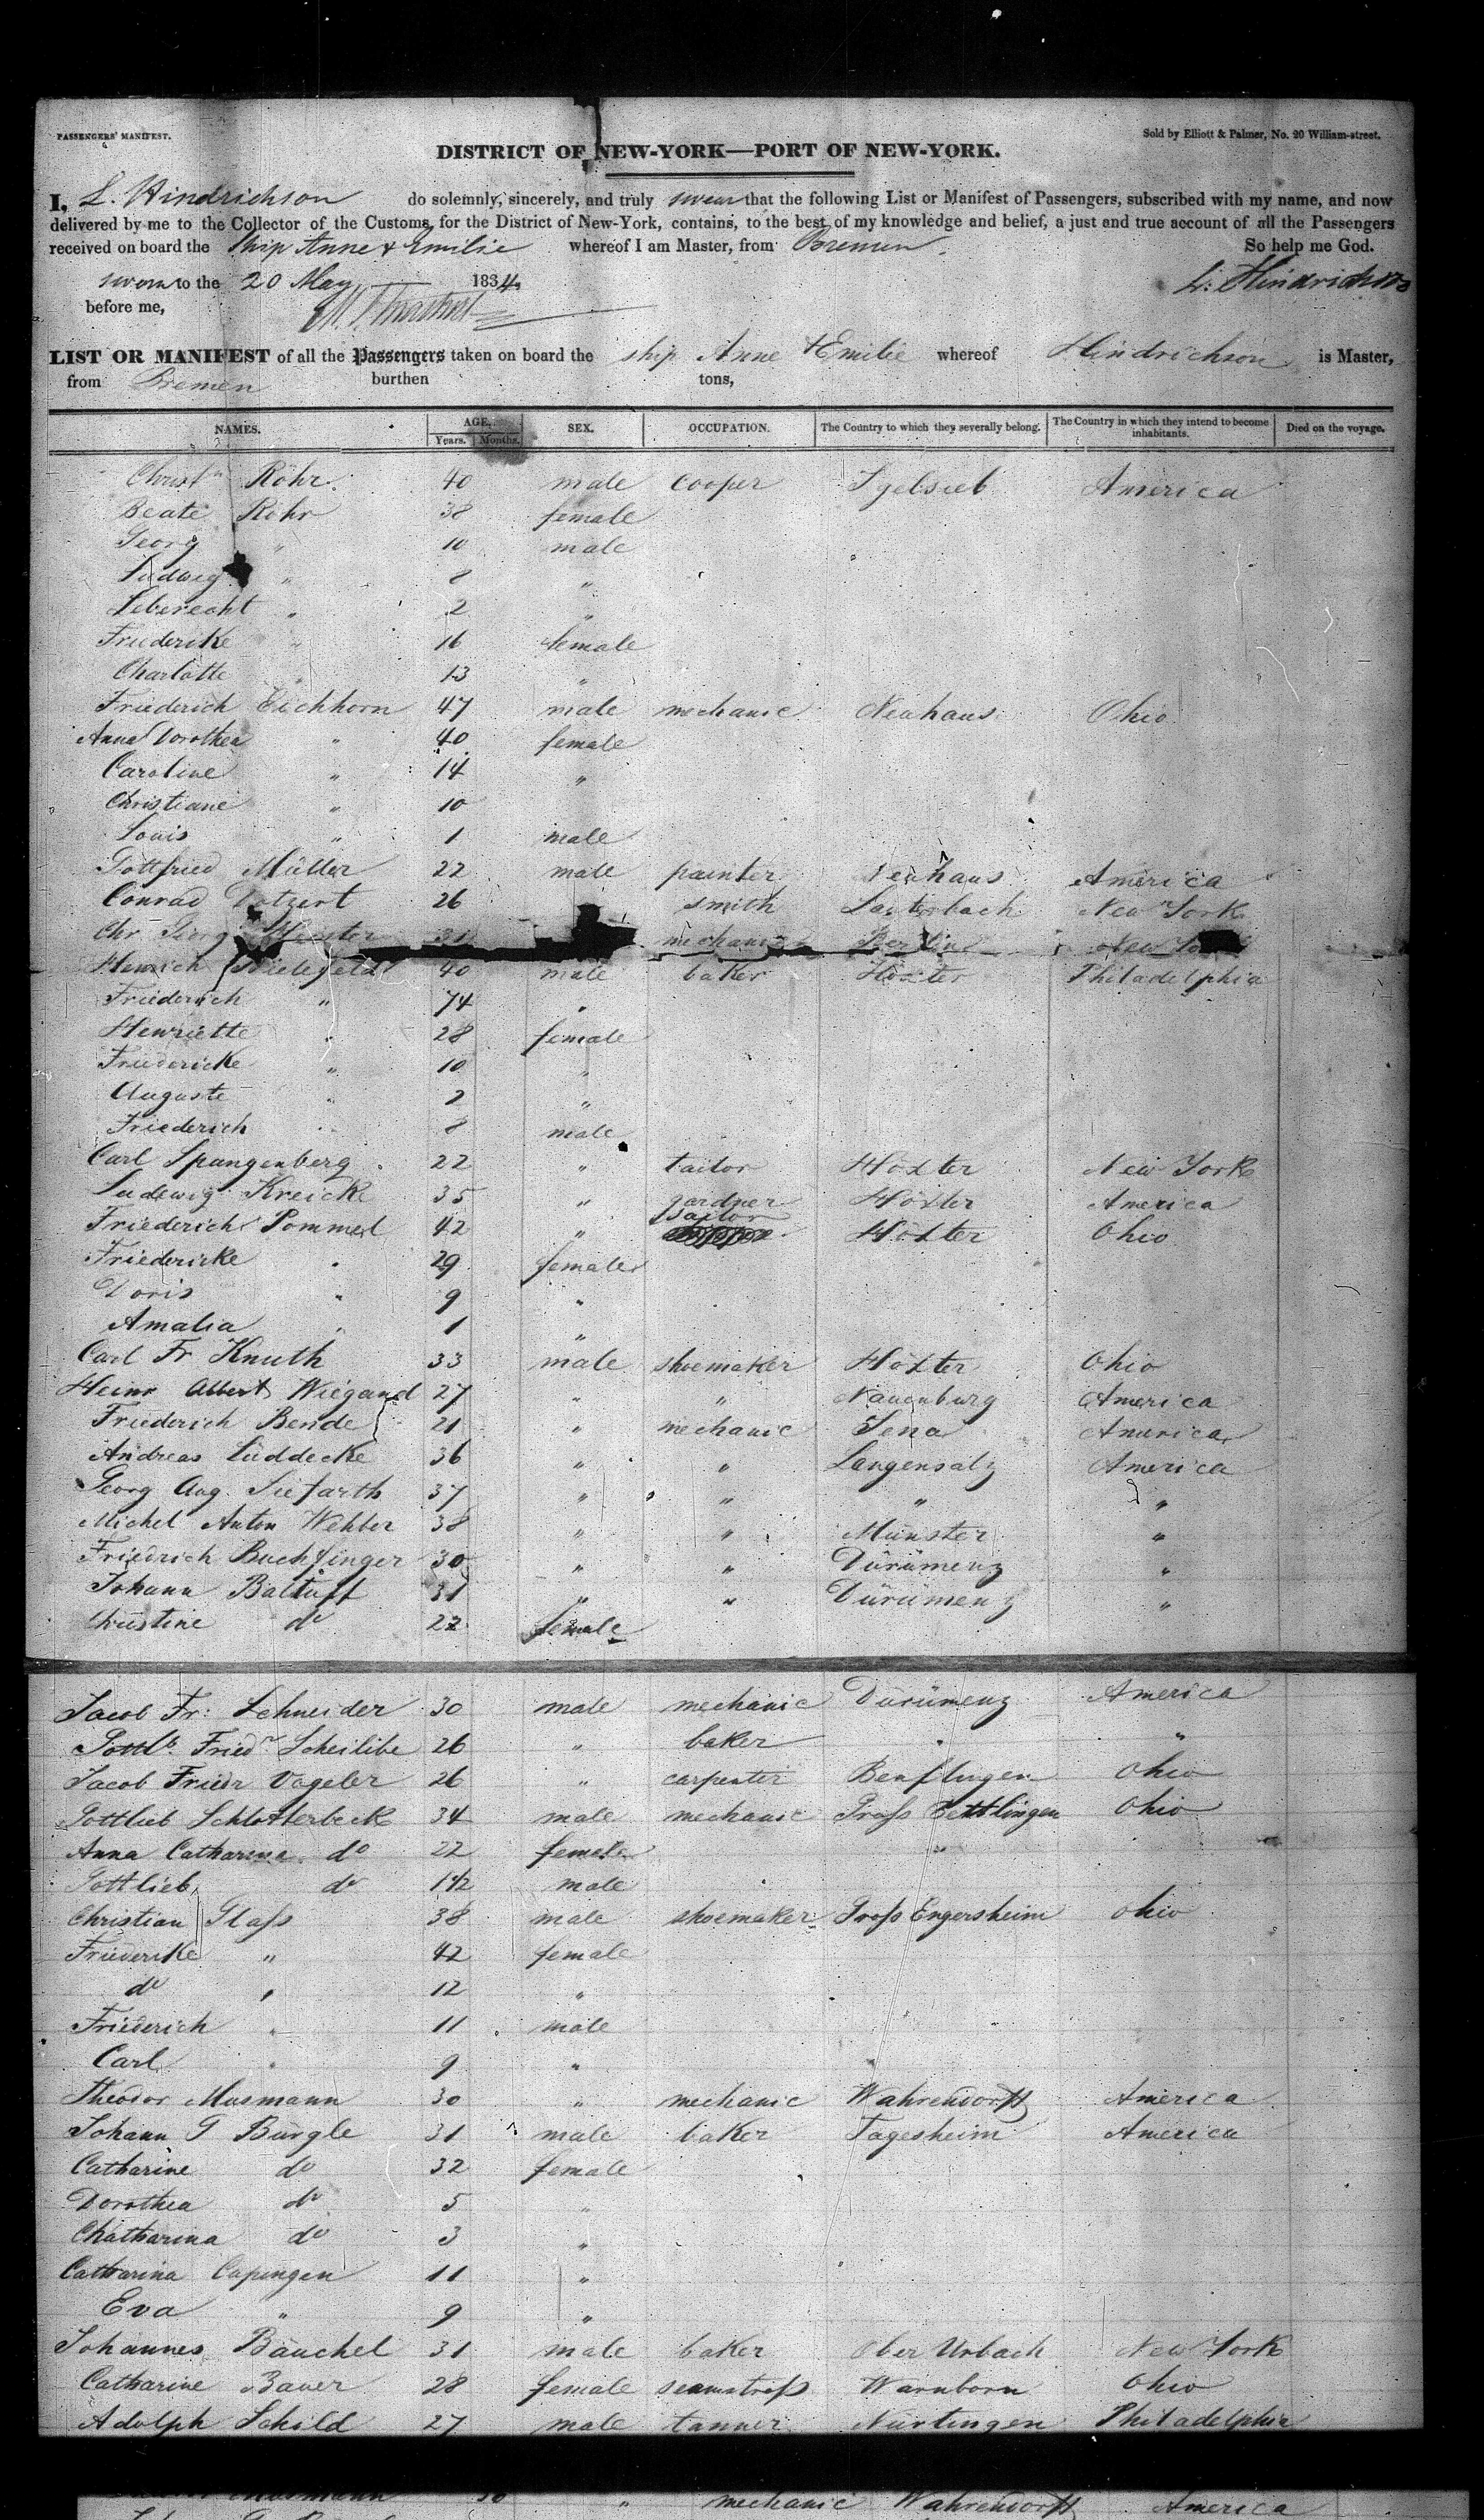 PASSENGERS' MANIFEST.
Sold by Elliott & Palmer, No. 20 William-street.
DISTRICT OF NEW-YORK—PORT OF NEW-YORK.
I, L. Hindrichson do solemnly, sincerely, and truly swear that the following List or Manifest of Passengers, subscribed with my name, and now
delivered by me to the Collector of the Customs, for the District of New-York, contains, to the best of my knowledge and belief, a just and true account of all the Passengers
received on board the Ship Anne & Emilie whereof I am Master, from Bremen. So help me God.
sworn to the 20 May 1834. L. Hindrichson
before me,
LIST OR MANIFEST of all the Passengers taken on board the ship Anne & Emilie whereof Hindrichson is Master,
from Bremen burthen tons,
NAMES. AGE. Years. Months. SEX. OCCUPATION. The Country to which they severally belong. The Country in which they intend to become inhabitants. Died on the voyage.
Christn Röhr. 40 male cooper Igelsieb America
Beate Röhr 38 female
Georg " 10 male
Ludwig " 8 "
Leberecht " 2 "
Friederike " 16 female
Charlotte " 13 "
Friederich Eichhorn 47 male mechanic Neuhaus Ohio
Anna Dorothea " 40 female
Caroline " 14 "
Christiane " 10
Louis " 1 male
Gottfried Müller 22 male painter Neuhaus America
Conrad 26 smith Lauterbach New York
Chr Georg 31 mechanic Berlin New York
Henrich 40 male baker Höxter Philadelphia
Friederich " 74 "
Henriette " 28 female
Friedericke " 10 "
Auguste " 2 "
Friederich " 8 male
Carl Spangenberg 22 " tailor Höxter New York
Ludewig Kreick 35 " gardner Höxter America
Friederich Pommel 42 " sailor Höxter Ohio
Friedericke " 29 female
Doris " 9 "
Amalia " 1 "
Carl Fr Knuth 33 male shoemaker Höxter Ohio
Heinr Albert Wiegand 27 " " Nauenburg America
Friederich Bende 21 " mechanic Jena America
Andreas Lüddecke 36 " " Langensalz America
Georg Aug. Siefarth 37 " " " "
Michel Anton Wehber 38 " " Münster "
Friedrich Buchfinger 30 " " Dürümenz "
Johann Baltuff 31 " " Dürümenz "
Christine do 22 female
Jacob Fr: Schneider 30 male mechanic Dürümenz America
Gottlb. Friedr Scheilibe 26 " baker " "
Jacob Friedr Vageler 26 " carpenter Benflugen Ohio
Gottlieb Schlotterbeck 34 male mechanic Groß Bettlingen Ohio
Anna Catharina do 22 female "
Gottlieb do 1½ male
Christian Glaß 38 male shoemaker Groß Engersheim Ohio
Friederike " 42 female
do " 12 "
Friederich " 11 male
Carl " 9 "
Theodor Musmann 30 " mechanic Wahrendorff America
Johann G Bürgle 31 male baker Tagesheim America
Catharine do 32 female
Dorothea do 5 "
Chatharina do 3 "
Catharina Capingen 11 "
Eva " 9 "
Johannes Bäuchel 31 male baker Ober Urbach New York
Catharine Bauer 28 female seamstreß Warnborn Ohio
Adolph Schild 27 male tanner Nürtingen Philadelphia
mechanic Wahrendorff America